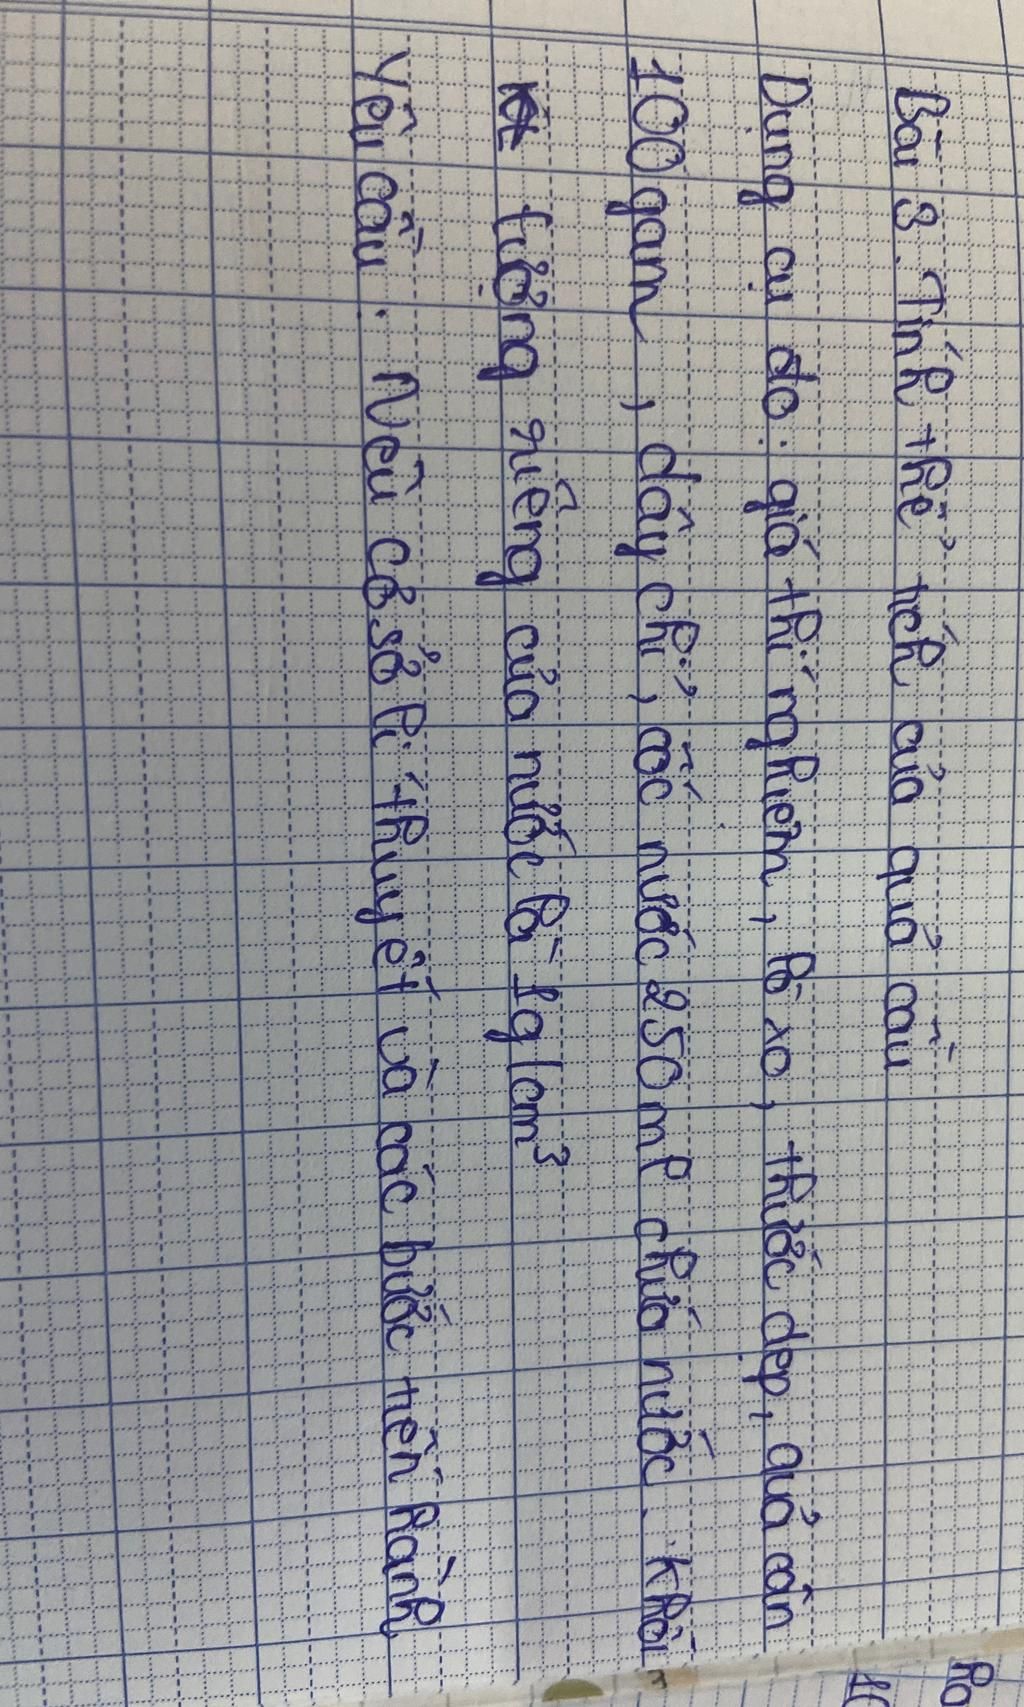 Bài 8. Tính thể tích của quả cầu
Dụng cụ đo: giá thí nghiệm, lò xo, thước dẹp, quả cân
100 gam, dây chỉ, cốc nước 250 ml chứa nước. Khối
lượng riêng của nước là 1g/cm³
Yêu cầu. Nêu cơ sở lí thuyết và các bước tiến hành